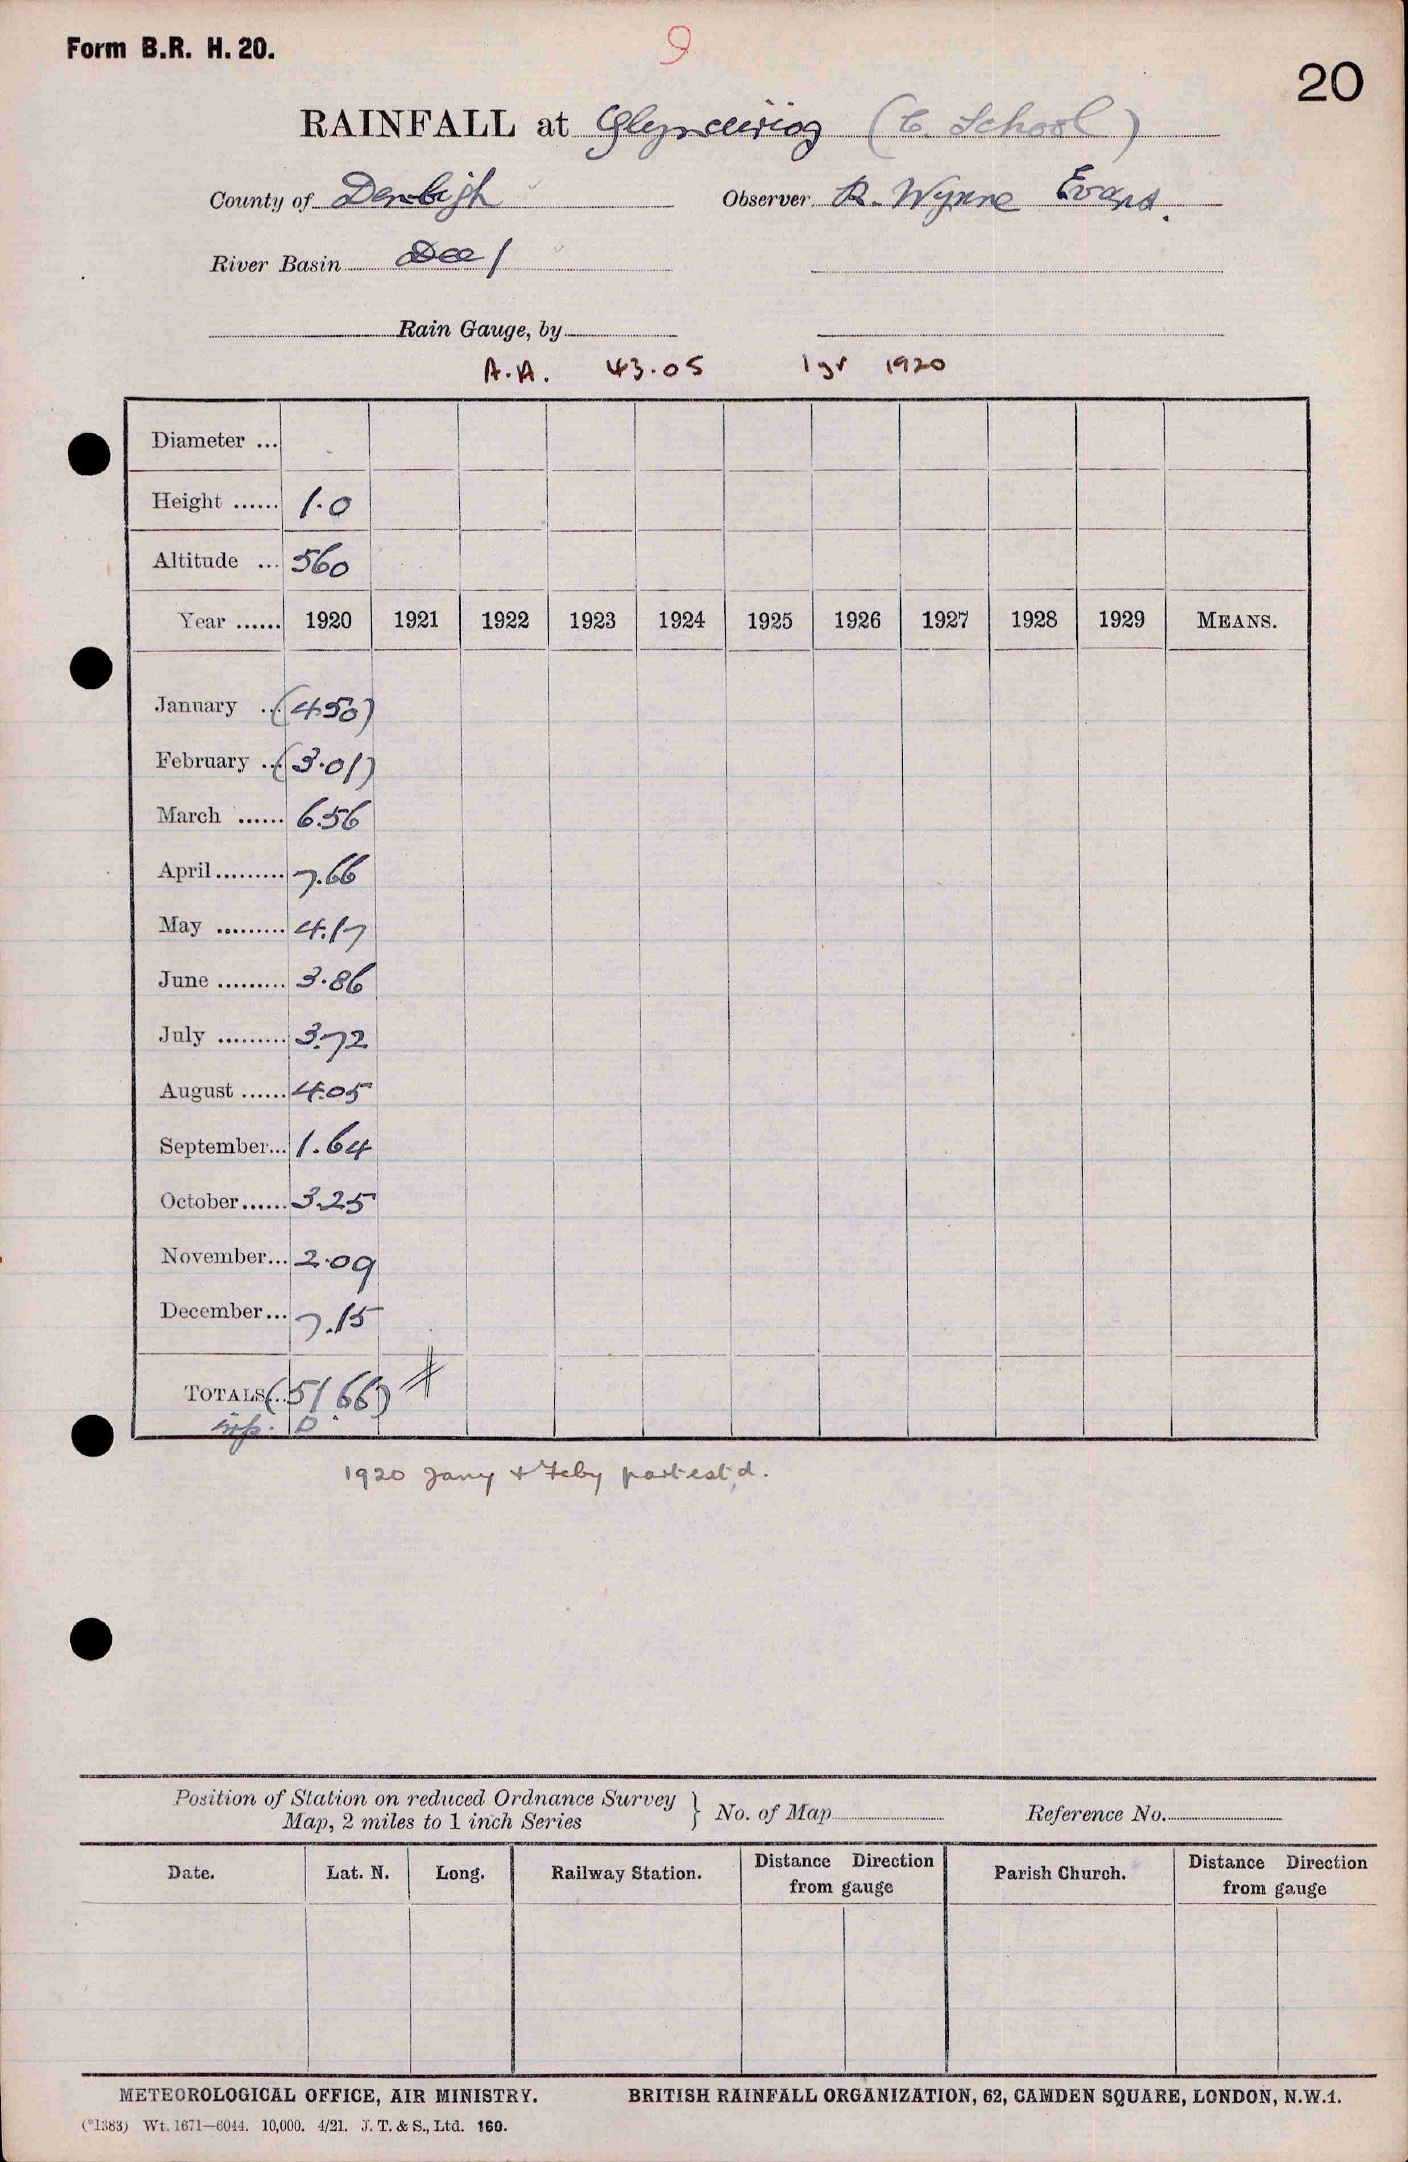 Form B.R. H. 20.
9
20
RAINFALL at Glynceiriog (C. School)
County of Denbigh Observer R. Wynne Evans.
River Basin Dee /
Rain Gauge, by
A.A. 43.05 1 yr 1920
Diameter ...
Height ...... 1.0
Altitude ... 560
Year ...... 1920 1921 1922 1923 1924 1925 1926 1927 1928 1929 MEANS.
January ... (4.50)
February ... (3.01)
March ...... 6.56
April ......... 7.66
May ......... 4.17
June ......... 3.86
July ......... 3.72
August ...... 4.05
September... 1.64
October...... 3.25
November... 2.09
December... 7.15
TOTALS... (51.66) #
D
1920 Jany & Feby part est'd.
Position of Station on reduced Ordnance Survey
Map, 2 miles to 1 inch Series } No. of Map Reference No.
Date. Lat. N. Long. Railway Station. Distance Direction from gauge Parish Church. Distance Direction from gauge
METEOROLOGICAL OFFICE, AIR MINISTRY. BRITISH RAINFALL ORGANIZATION, 62, CAMDEN SQUARE, LONDON, N.W.1.
(*1383) Wt. 1671—6044. 10,000. 4/21. J. T. & S., Ltd. 160.